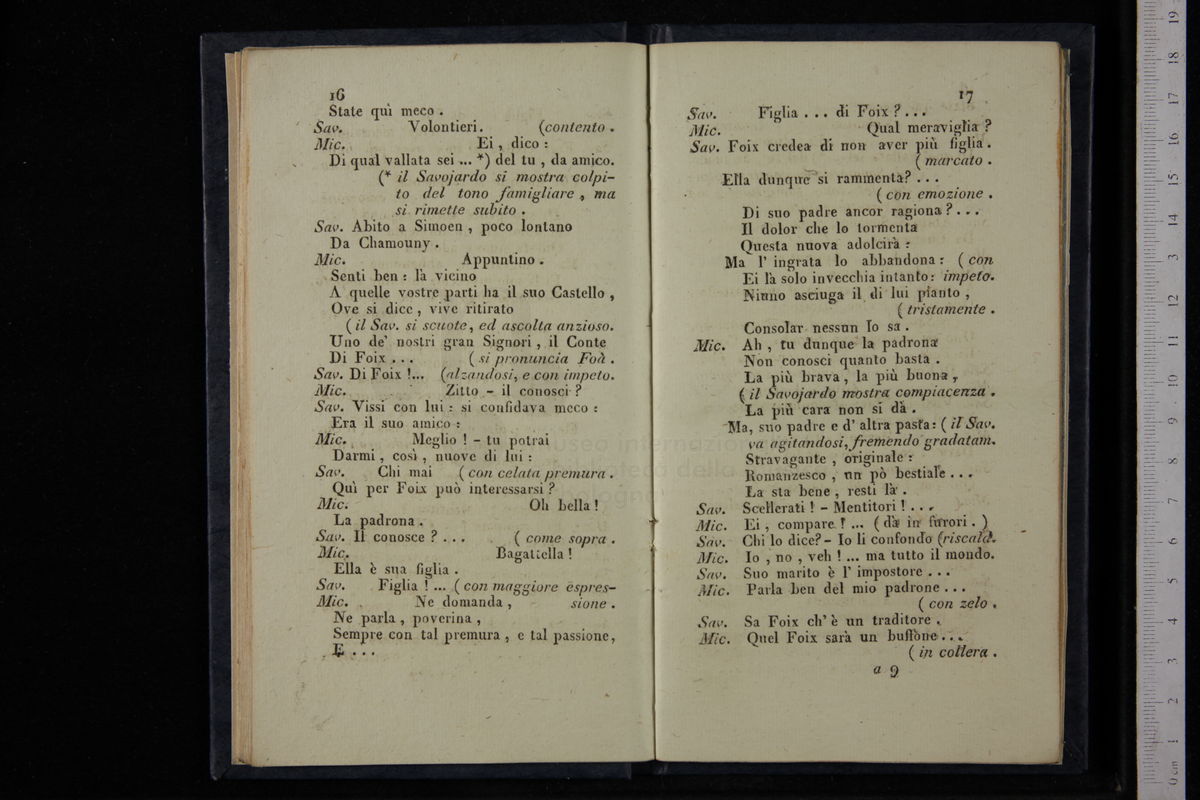 16
State quì meco .
Sav. Volontieri. (contento .
Mic. Ei , dico :
Di qual vallata sei ... *) del tu , da amico.
(* il Savojardo si mostra colpi-
to del tono famigliare , ma
si rimette subito .
Sav. Abito a Simoen , poco lontano
Da Chamouny .
Mic. Appuntino .
Senti ben : là vicino
A quelle vostre parti ha il suo Castello ,
Ove si dice , vive ritirato
( il Sav. si scuote, ed ascolta anzioso.
Uno de' nostri gran Signori , il Conte
Di Foix . . . ( si pronuncia Foà .
Sav. Di Foix !... (alzandosi, e con impeto.
Mic. Zitto - il conosci ?
Sav. Vissi con lui : si confidava meco :
Era il suo amico :
Mic. Meglio ! - tu potrai
Darmi , così , nuove di lui :
Sav. Chi mai ( con celata premura .
Quì per Foix può interessarsi ?
Mic. Oh bella !
La padrona .
Sav. Il conosce ? . . . ( come sopra .
Mic. Bagatiella !
Ella è sua figlia .
Sav. Figlia ! ... ( con maggiore espres-
Mic. Ne domanda , sione .
Ne parla , poverina ,
Sempre con tal premura , e tal passione,
E . . .
17
Sav. Figlia . . . di Foix ? . . .
Mic. Qual meraviglia ?
Sav. Foix credea di non aver più figlia .
( marcato .
Ella dunque si rammenta? . . .
( con emozione .
Di suo padre ancor ragiona ? . . .
Il dolor che lo tormenta
Questa nuova adolcirà :
Ma l' ingrata lo abbandona : ( con
Ei là solo invecchia intanto : impeto.
Niuno asciuga il di lui pianto ,
( tristamente .
Consolar nessun lo sa .
Mic. Ah , tu dunque la padrona
Non conosci quanto basta .
La più brava , la più buona ,
( il Savojardo mostra compiacenza .
La più cara non si dà .
Ma, suo padre e d' altra pasta : ( il Sav.
va agitandosi, fremendo gradatam.
Stravagante , originale :
Romanzesco , un pò bestiale . . .
La sta bene , resti là .
Sav. Scellerati ! - Mentitori ! . . .
Mic. Ei , compare ! ... ( dà in furori . )
Sav. Chi lo dice? - Io li confondo (riscald.
Mic. Io , no , veh ! ... ma tutto il mondo.
Sav. Suo marito è l' impostore . . .
Mic. Parla ben del mio padrone . . .
( con zelo .
Sav. Sa Foix ch' è un traditore .
Mic. Quel Foix sarà un buffone . . .
( in collera .
a 9